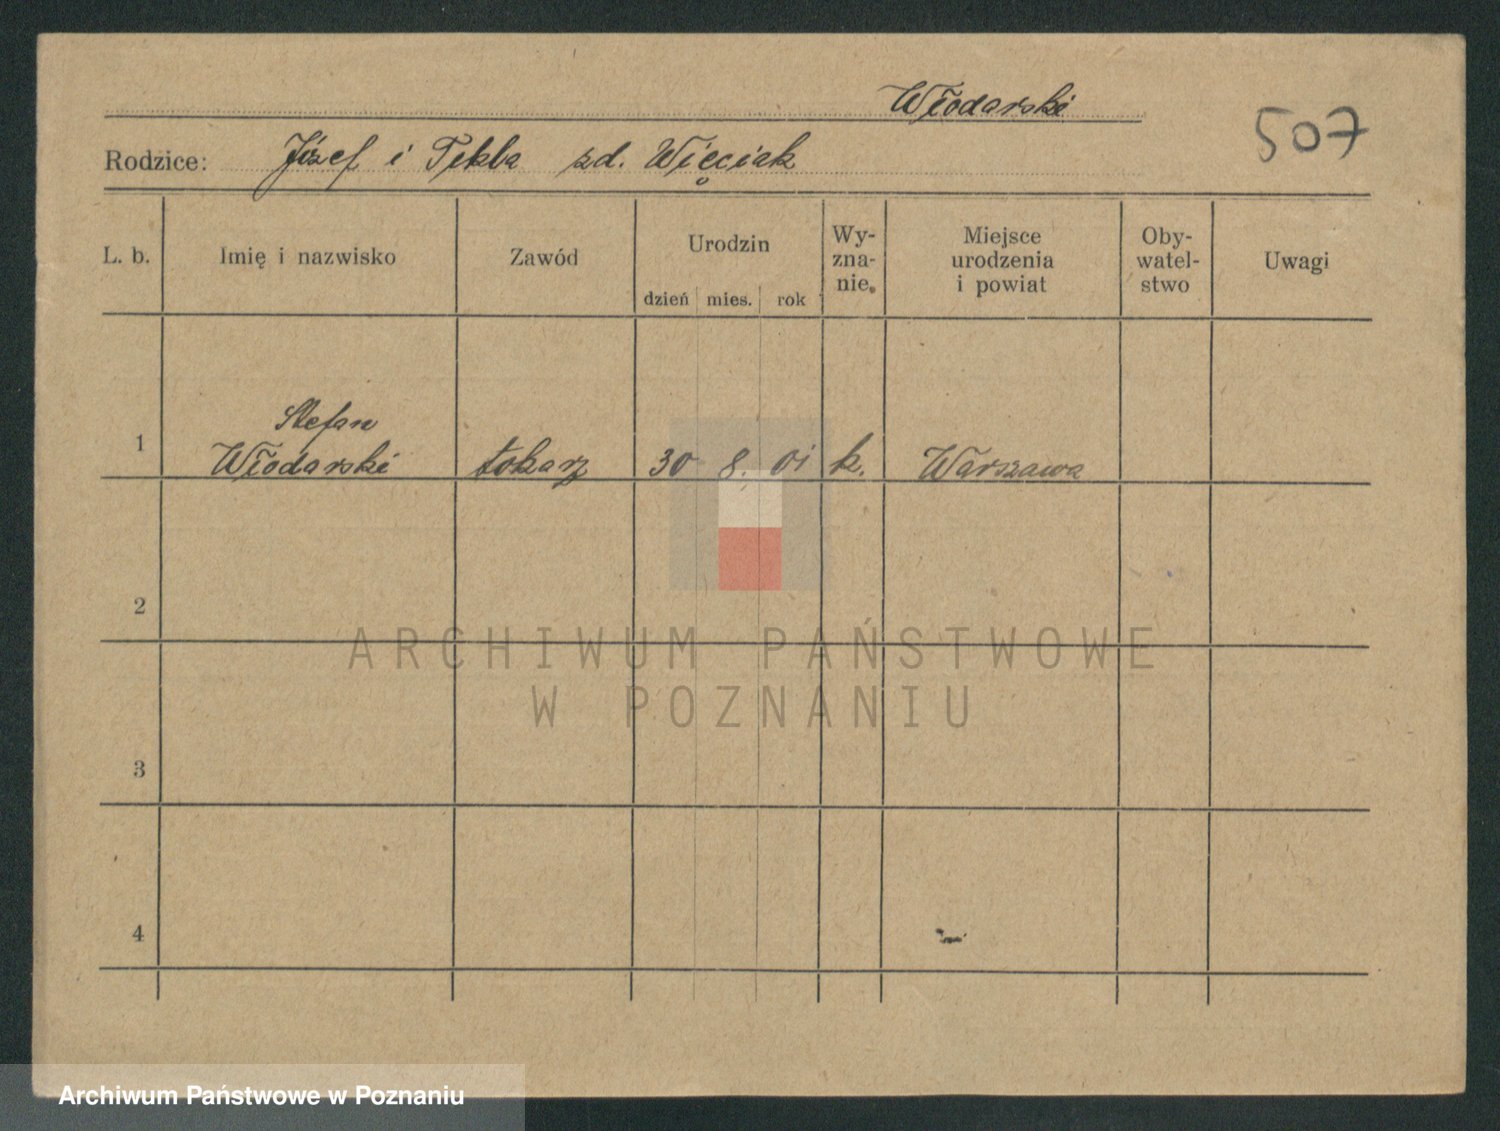 Włodarski
507
Rodzice: Józef i Tekla zd. Więciak
L. b. Imię i nazwisko Zawód Urodzin dzień mies. rok Wy-zna-nie. Miejsce urodzenia i powiat Oby-watel-stwo Uwagi
1 Stefan Włodarski tokarz 30 8. 01 k. Warszawa
2
3
4
ARCHIWUM PAŃSTWOWE
W POZNANIU
Archiwum Państwowe w Poznaniu